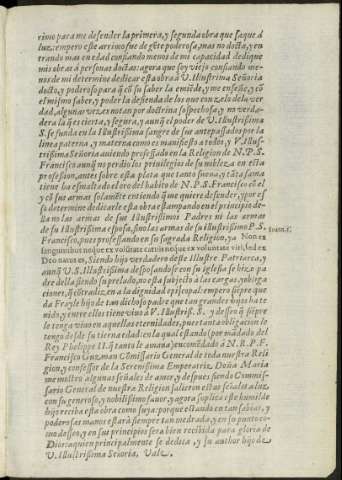 rimo para me defender la primera, y segunda obra que saque a
luz: empero este arrimo fue de gẽte poderosa, mas no docta, y en
trando mas en edad confiando menos de mi capacidad dedique
mis obras a personas doctas: agora que soy viejo confiando me-
nos de mi determine dedicar esta obra à V. Illustrima Señoria
docto, y poderoso para q̃ cõ su saber la emiẽde, y me enseñe, y cõ
el mismo saber, y poder la defienda de los que con zelo de la ver
dad, algunas vezes notan por doctrina sospechosa, y no verda-
dera la q̃ es cierta, y segura, y aunq̃ el poder de V. Illustrissima
S. se funda en la Illustrissima sangre de sus antepassados por la
linea paterna, y materna como es manifiesto a todos, y V. Illus-
trissima Señoria auiendo professado en la Religion de N. P. S.
Francisco aunq̃ no perdio los privilegios de su nobleza en esta
profession, antes sobre esta plata que tanto suena, y tãta fama
tiene ha esmaltado el oro del habito de N. P. S. Francisco cõ el
y cõ sus armas solamẽte entiendo q̃ me quiere defender, y por es
so determine dedicarle esta obra estampando en el principio de-
lla no las armas de sus Illustrissimos Padres ni las armas
de su Illustrissima esposa, sino las armas de su Illustrissimo P. S.
Francisco, pues professando en su sagrada Religion, ya Non ex
Ioann. 1.
sanguinibus neque ex voluntate carnis neque ex voluntate viri, sed ex
Deo natus es, Siendo hijo verdadero deste Illustre Patriarca, y
aunq̃ V. S. Illustrissima desposandose con su iglesia se hizo pa
dre della siendo su prelado, no esta subjecto à las cargas, y obliga
ciones, q̃ cõtradiz en a la dignidad episcopal, empero siẽpre que
da Frayle hijo de tan dichoso padre que tan grandes hijos ha te
nido, y entre ellos tiene viuo à V. Illustriss. S. y desseo q̃ siẽpre
le tenga viuo en aquellas eternidades, pues tanta obligacion le
tengo desde su tierna edad: en la qual estando (por mãdado del
Rey Phelippe II. q̃ tanto le amaua) encomẽdado à N. R. P. F.
Francisco Guzman Comissario General de toda nuestra Reli
gion, y confessor de la Serenissima Emperatriz Doña Maria
me mostro algunas señales de amor, y despues siendo Commis-
sario General de nuestra Religion salieron estas señales a luz,
con su generoso, y nobilissimo fauor, y agora suplica este humilde
hijo reciba esta obra como suya: porque estando en tan sabias, y
poderosas manos estarà siempre tan medrada, y en su punto co-
mo desseo, y en sus principios sera bien recibida para gloria de
Dios a quien principalmente se dedica, y su author hijo de
V. Illustrissima Señoria, Vale,